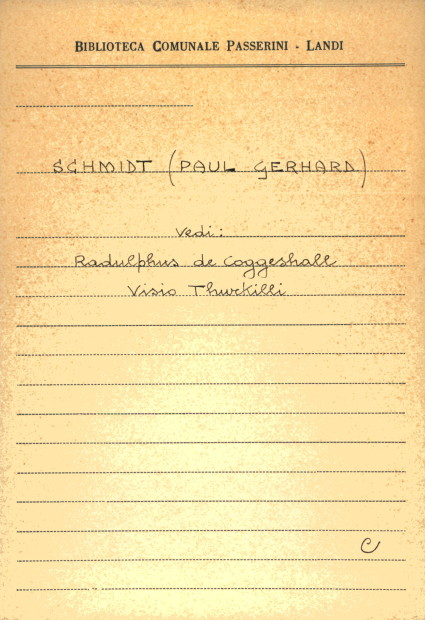 BIBLIOTECA COMUNALE PASSERINI - LANDI
SCHMIDT (PAUL GERHARD)
Vedi:
Radulphus de Coggeshall
Visio Thurkilli
C